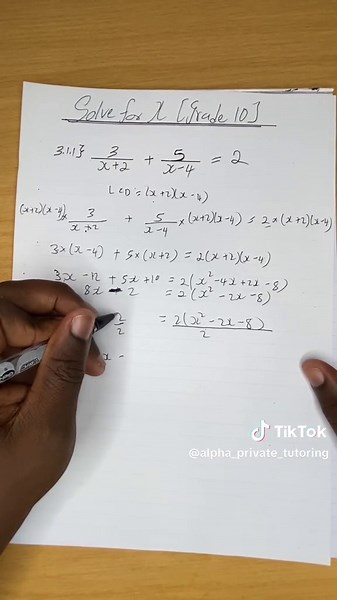 Solve for x [Grade 10]
3.1.1} 3/(x+2) + 5/(x-4) = 2
LCD = (x+2)(x-4)
(x+2)(x-4)× 3/(x+2) + 5/(x-4) ×(x+2)(x-4) = 2×(x+2)(x-4)
3×(x-4) + 5×(x+2) = 2(x+2)(x-4)
3x -12 + 5x +10 = 2(x²-4x+2x-8)
8x - 2 = 2(x²-2x-8)
2/2 = 2(x²-2x-8)/2
x -
TikTok
@alpha_private_tutoring